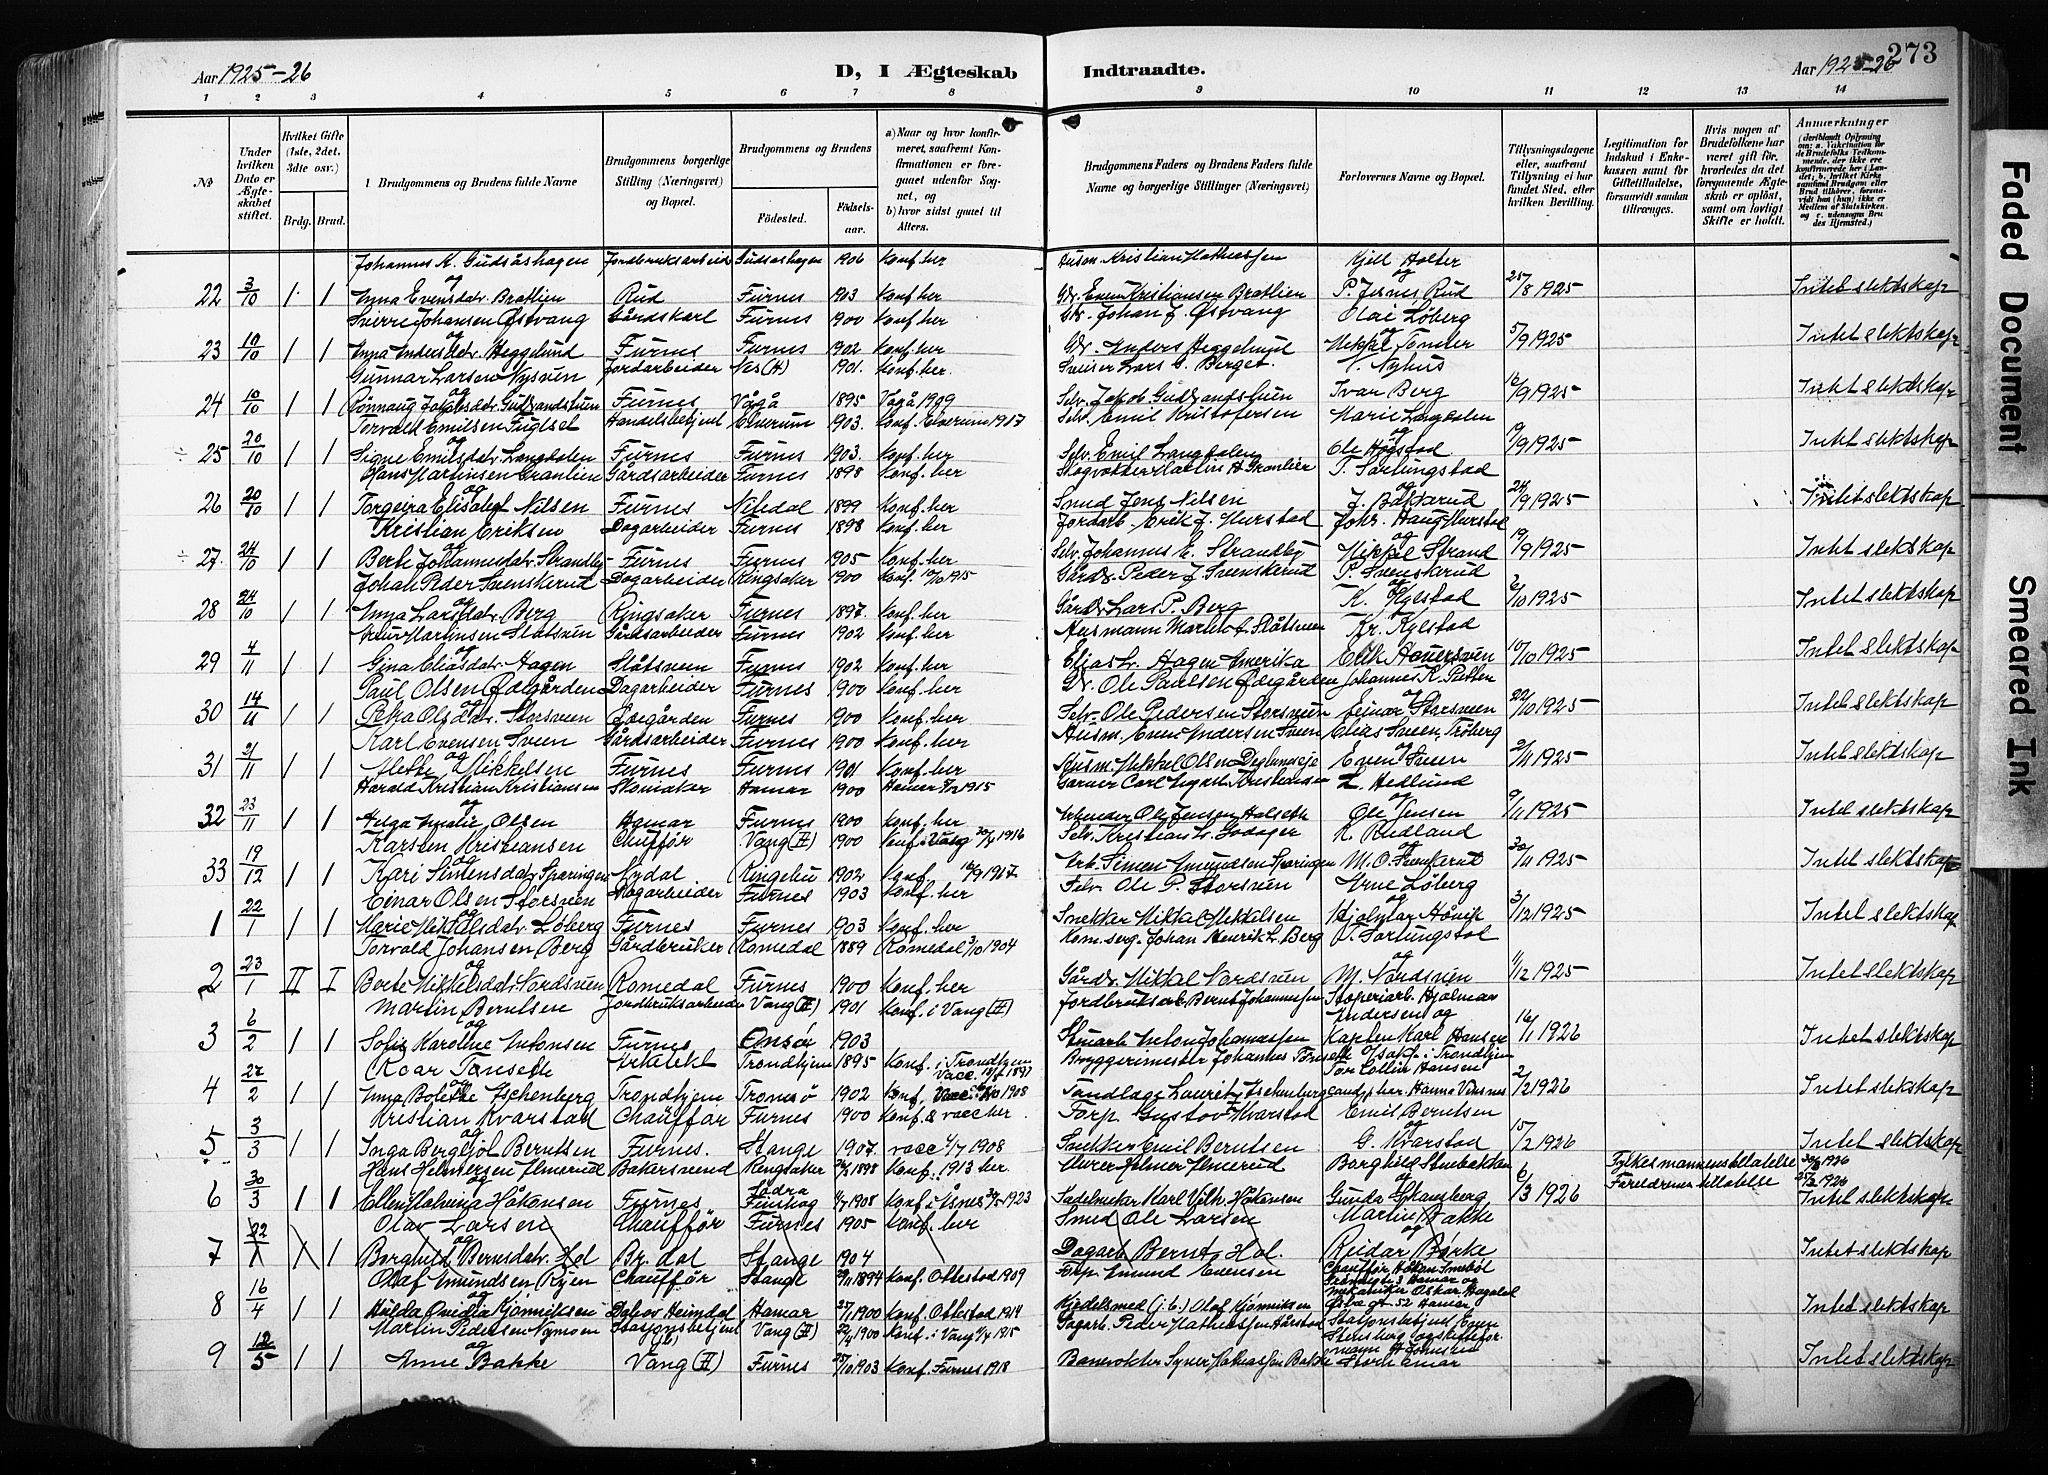 Aar 1925-26
D, I Ægteskab
Indtraadte.
Aar 1925-26
273
1 2 3 4 5 6 7 8 9 10 11 12 13 14
No
Under hvilken Dato er Ægteskabet stiftet.
Hvilket Gifte (1ste, 2det, 3dte osv.)
Brdg. Brud.
Brudgommens og Brudens fulde Navne
Brudgommens borgerlige Stilling (Næringsvei) og Bopæl.
Brudgommens og Brudens
Födested. Födselsaar.
a) Naar og hvor konfirmeret, saafremt Konfirmationen er foregaaet udenfor Sognet, og
b) hvor sidst gaaet til Alters.
Brudgommens Faders og Brudens Faders fulde Navne og borgerlige Stillinger (Næringsvei)
Forlovernes Navne og Bopæl.
Tillysningsdagene eller, saafremt Tillysning ei har fundet Sted, efter hvilken Bevilling.
Legitimation for Indskud i Enkekassen samt for Giftetilladelse, forsaavidt saadan tiltrænges.
Hvis nogen af Brudefolkene har været gift för, hvorledes da det foregaaende Ægteskab er oplöst, samt om lovligt Skifte er holdt.
Anmærkninger
Johannes K. Gudsåshagen Jordbruksarbeid Gudsåshagen 1906 Konf. her Husm. Kristian Mathiassen Kjell Holter
22 3/10 1 1 og Anna Evensdatr. Bratlien Rud Furnes 1903 Konf. her Gbr. Even Kristiansen Bratlien og P. Jernes Rud 25/8 1925 Intet slektskap
Sverre Johansen Østvang Gårdskarl Furnes 1900 Konf. her Gbr. Johan J. Østvang Olai Løberg
23 10/10 1 1 og Anna Andersdatr. Heggelund Furnes Furnes 1902 Konf. her Gbr. Anders Heggelund Mikkel Tomter 5/9 1925 Intet slektskap
Gunnar Larsen Nysven Jordarbeider Nes (H) 1901. Konf. her. Sveiser Lars G. Berget. N. Nyhus
24 10/10 1 1 Rønnaug Jakobsdatr. Gudbrandshuen Furnes Vågå 1895 Vågå 1909 Selv. Jakob Gudbrandshuen Ivar Berg 12/9 1925 Intet slektskap
Torvald Emilsen Fuglset Handelsbetjent Elverum 1903. Konf. Elverum 1917 Selv. Emil Kristofersen Marie Langdalen
25 20/10 1 1 og Signe Emilsdatr. Langdalen Furnes Furnes 1903. Konf. her Selv. Emil Langdalen og Ole Høgstad 19/9 1925 Intet slektskap
Hans Martinsen Granlien Gårdsarbeider Furnes 1898 Konf. her Skogvokter Martin H. Granlien T. Sørlungstad
26 20/10 1 1 og Torgeira Elisabet Nilsen Furnes Nitedal 1899 Konf. her Smed Jens Nilsen og J. Bakkerud 24/9 1925 Intet slektskap
Kristian Eriksen Dagarbeider Furnes 1898 Konf. her Jordarb. Erik J. Hurstad Johr. Haug Hurstad
27. 24/10 1 1 og Berte Johannesdatr. Strandby Furnes Furnes 1905 Konf. her Selv. Johannes E. Strandby og Mikkel Strand 19/9 1925 Intet slektskap
Johan Peder Svenskerud Dagarbeider Ringsaker 1900 Konf. 10/10 1915 Gårdbr. Peder J. Svenskerud P. Svenskerud
28 24/10 1 1 og Anna Larsdatr. Berg Ringsaker Furnes 1897. Konf. her Gårdbr. Lars P. Berg og K. Kylstad 2/10 1925 Intet slektskap
Martinsen Slåtsveen Gårdsarbeider Furnes 1902 Konf. her Husmann Martin L. Slåtsveen Kr. Kylstad
29 4/11 1 1 og Gina Eliasdatr. Hagen Slåtsveen Furnes 1902 Konf. her Elias L. Hagen Amerika Erik Hauersven 10/10 1925 Intet slektskap
Paul Olsen Ødegården Dagarbeider Furnes 1900 Konf. her Gbr. Ole Paulsen Ødegården Johannes K. Pütten
30 14/11 1 1 og Petra Olsdatr. Storsveen Ødegården Furnes 1900 Konf. her Selv. Ole Pedersen Storsveen og Einar Storsveen 22/10 1925 Intet slektskap
Karl Evensen Sveen Gårdsarbeider Furnes 1900 Konf. her Husm. Even Andersen Sveen Elias Sveen, Trøberg
31 21/11 1 1 og Mette Mikkelsen Furnes Furnes 1901 Konf. her Husm. Mikkel Olsen Deglumseje og Even Sveen 2/11 1925 Intet slektskap
Harald Kristian Kristiansen Skomaker Hamar 1900 Hamar 1915 Garver Carl August Kristiansen L. Hedlund
32 23/11 1 1 og Helga Amalie Olsen Hamar Furnes 1900 Konf. her Arbeider Ole Jensen Halseth og Ole Jensen 9/11 1925 Intet slektskap
Karsten Kristiansen Chauffør Vang (H) 1900 Konf. i Vang 30/4 1916 Selv. Kristian L. Godager K. Rudland
33 19/12 1 1 og Kari Simensdatr. Sparingen Nydal Ringebu 1902 Konf. 16/9 1917 Arb. Simen Amundsen Sparingen og M. O. Frenkerud 30/11 1925 Intet slektskap
Einar Olsen Storsveen Dagarbeider Furnes 1903 Konf. her Selv. Ole P. Storsveen Arne Løberg
1 22/1 1 1 og Marie Mikkelsdatr. Løberg Furnes Furnes 1903 Konf. her Snekker Mikkel Mikkelsen og Hjalmar Håvik 3/12 1925 Intet slektskap
Torvald Johansen Berg Gårdbruker Romedal 1889 Romedal 3/10 1904 Kom.serg. Johan Henrik L. Berg O. Sørlungstad
2 23/1 II I og Berte Mikkelsdatr. Nordsveen Romedal Furnes 1900 Konf. her Gårdbr. Mikkel Nordsveen og M. Nordsveen 11/12 1925 Intet slektskap
Martin Berntsen Jordbruksarbeider Vang (H) 1901 Konf. i Vang (H) Jordbruksarb. Bernt Johannessen Støperiarb. Hjalmar Andersen og
3 6/2 1 1 og Sofie Karoline Antonsen Furnes Onsø 1903 Stuearb. Anton Johannessen Kaptein Karl Hansen 16/1 1926 Intet slektskap
Roar Tønseth Arkitekt Trondhjem 1895 Konf. i Trondhjem Bryggerimester Johannes Tønseth O.sakf. i Trondhjem Tor Collin Hansen
4 27/2 1 1 og Anna Bolette Aschenberg Trondhjem Tromsø 1902 Konf. Vacc. 1908 Tandlæge Laurits Aschenberg cand. phar. Hanna Vensnes 2/2 1926 Intet slektskap
Kristian Kvarstad Chauffør Furnes 1900 Konf. & vacc her. Forp. Gustov Kvarstad Emil Berntsen
5 3/3 1 1 og Inga Bergljot Berntsen Furnes. Stange 1907. vacc 4/7 1908 Snekker Emil Berntsen G. Kvarstad 15/2 1926 Intet slektskap
Hans Helmersen Almerud Bakersvend Ringsaker 26/2 1898 Konf. 1913 her. Murer Helmer Almerud Borghild Stubekken Fylkesmannens tillatelse
6 30/3 1 1 og Ellen Malvina Håkansen Furnes Södra Finskog 1/7 1908 Konf. i Åsnes 30/5 1923 Sadelmaker Karl Vilh. Håkansen og Gunda Skansberg 6/3 1926 Foreldrenes tillatelse Intet slektskap
Olav Larsen Chauffør Furnes 1905 Konf. her Smed Ole Larsen Martin Bakke
7 22/1 1 1 og Borghild Berntsdatr. Hol Br. dal Stange 1904 Dagarb. Bernt Hol. og Reidar Børke Intet slektskap
Olaf Amundsen Ryen Chauffør Stange 9/11 1894 Konf. Ottestad 1909 Forp. Amund Evensen Chauffør Håkon Smebøl Grønnegt 3 Hamar og
8 16/4 1 1 og Hulda Ovidia Kjønniksen Dalvos Heimdal Hamar 27/1 1900 Konf. Ottestad 1914 Kjedelsmed (j.b.) Olaf Kjønniksen mekaniker Oskar Hagalid Østre gt. 52 Hamar Intet slektskap
Martin Pedersen Nymoen Stasjonsbetjent (j.b.) Vang (H) 22/4 1900 Konf. i Vang 1915 Dagarb. Peder Mathiassen Hårstad Stasjonsbetjent Even Stensberg
9 12/5 1 1 og Anne Bakke Vang (H) Furnes 25/10 1903 Konf. Furnes 1918 Banevokter Syver Mathiassen Bakke Intet slektskap
Faded Document
Smeared Ink